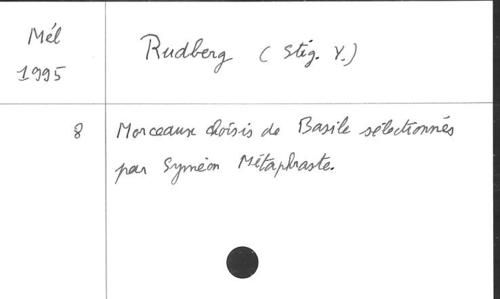 Mél
1995
Rudberg (Stig. Y.)
8
Morceaux choisis de Basile sélectionnés
par Syméon Métaphraste.